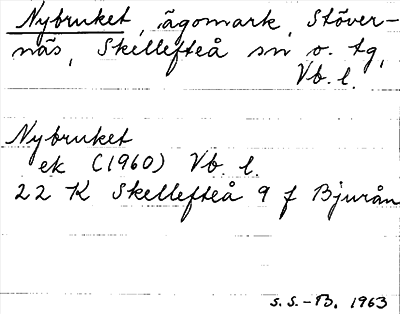 Nybruket, ägomark, Stöver-
näs, Skellefteå sn o. tg,
Vb. l.
Nybruket
ek (1960) Vb. l.
22 K Skellefteå 9 f Bjurån
S. S.-B. 1963